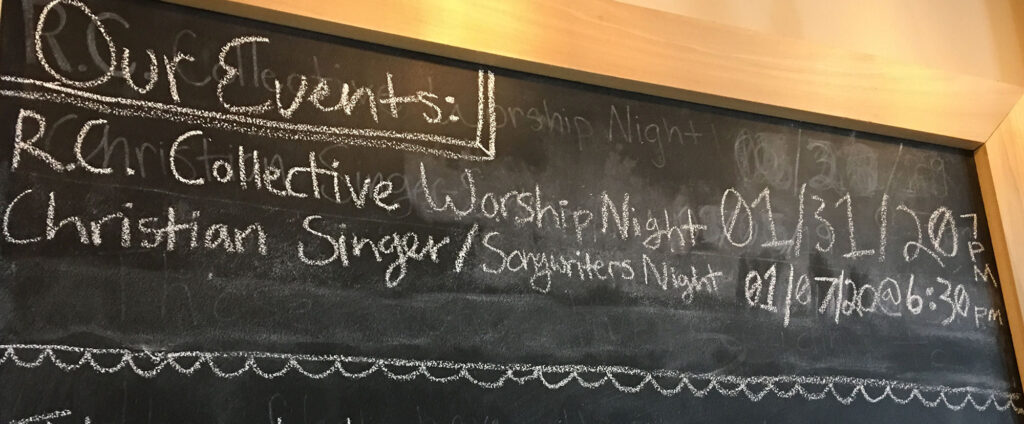 Our Events:
R.C. Collective Worship Night 01/31/20 7PM
Christian Singer/Songwriters Night 01/07/20@6:30pm